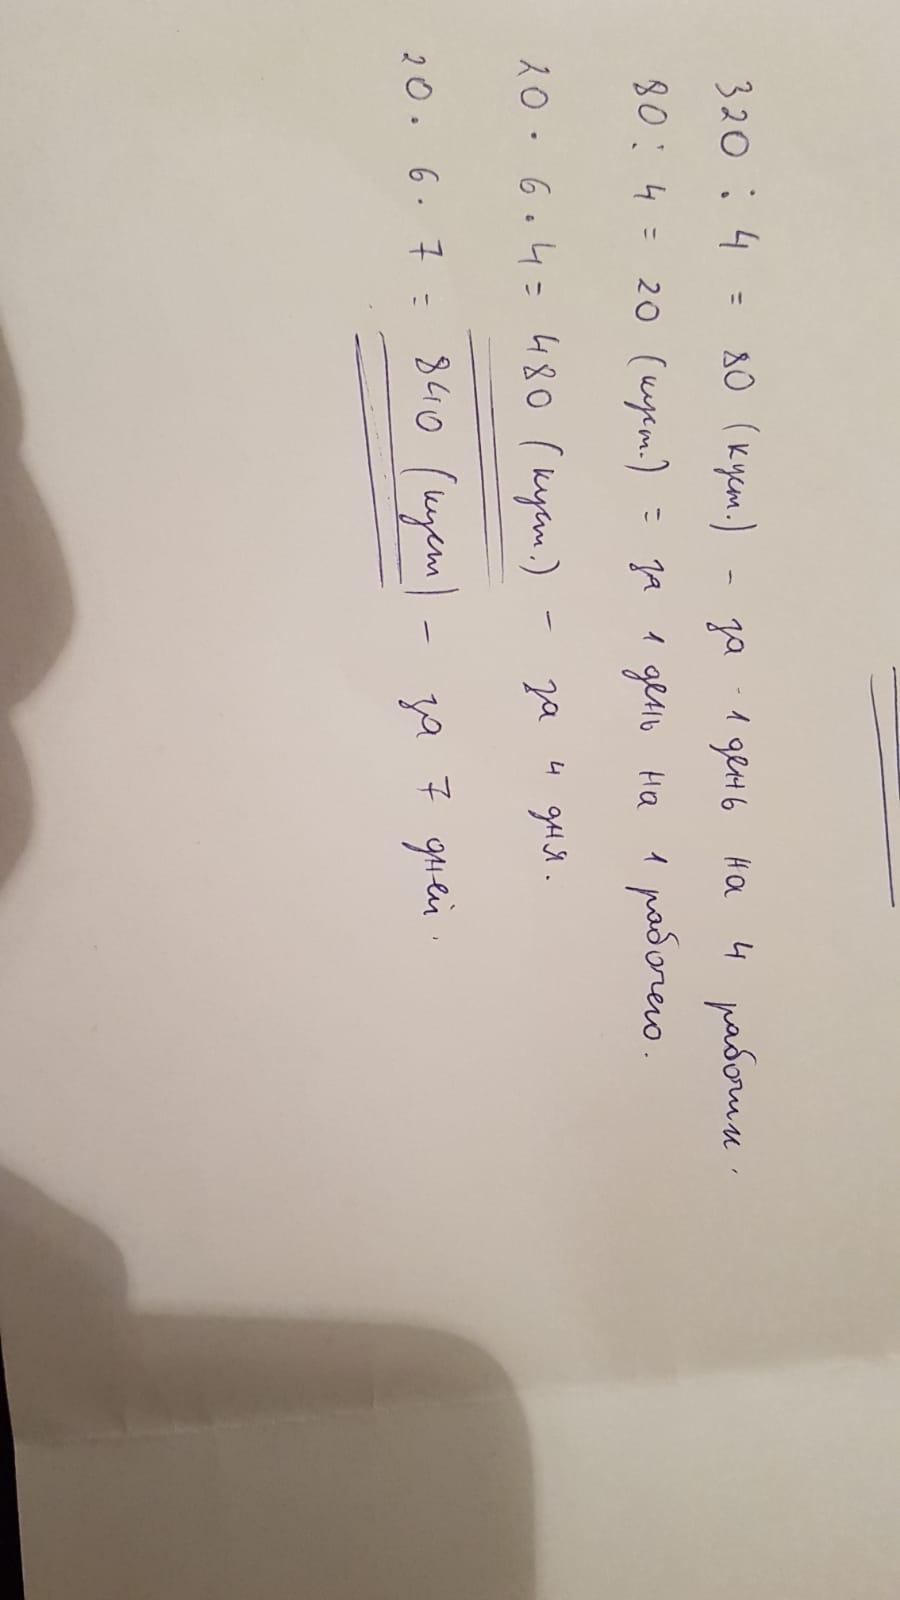 320 : 4 = 80 (куст.) - за 1 день на 4 рабочим.
80 : 4 = 20 (куст.) = за 1 день на 1 рабочего.
20 · 6 · 4 = 480 (куст.) - за 4 дня.
20 · 6 · 7 = 840 (куст) - за 7 дней.